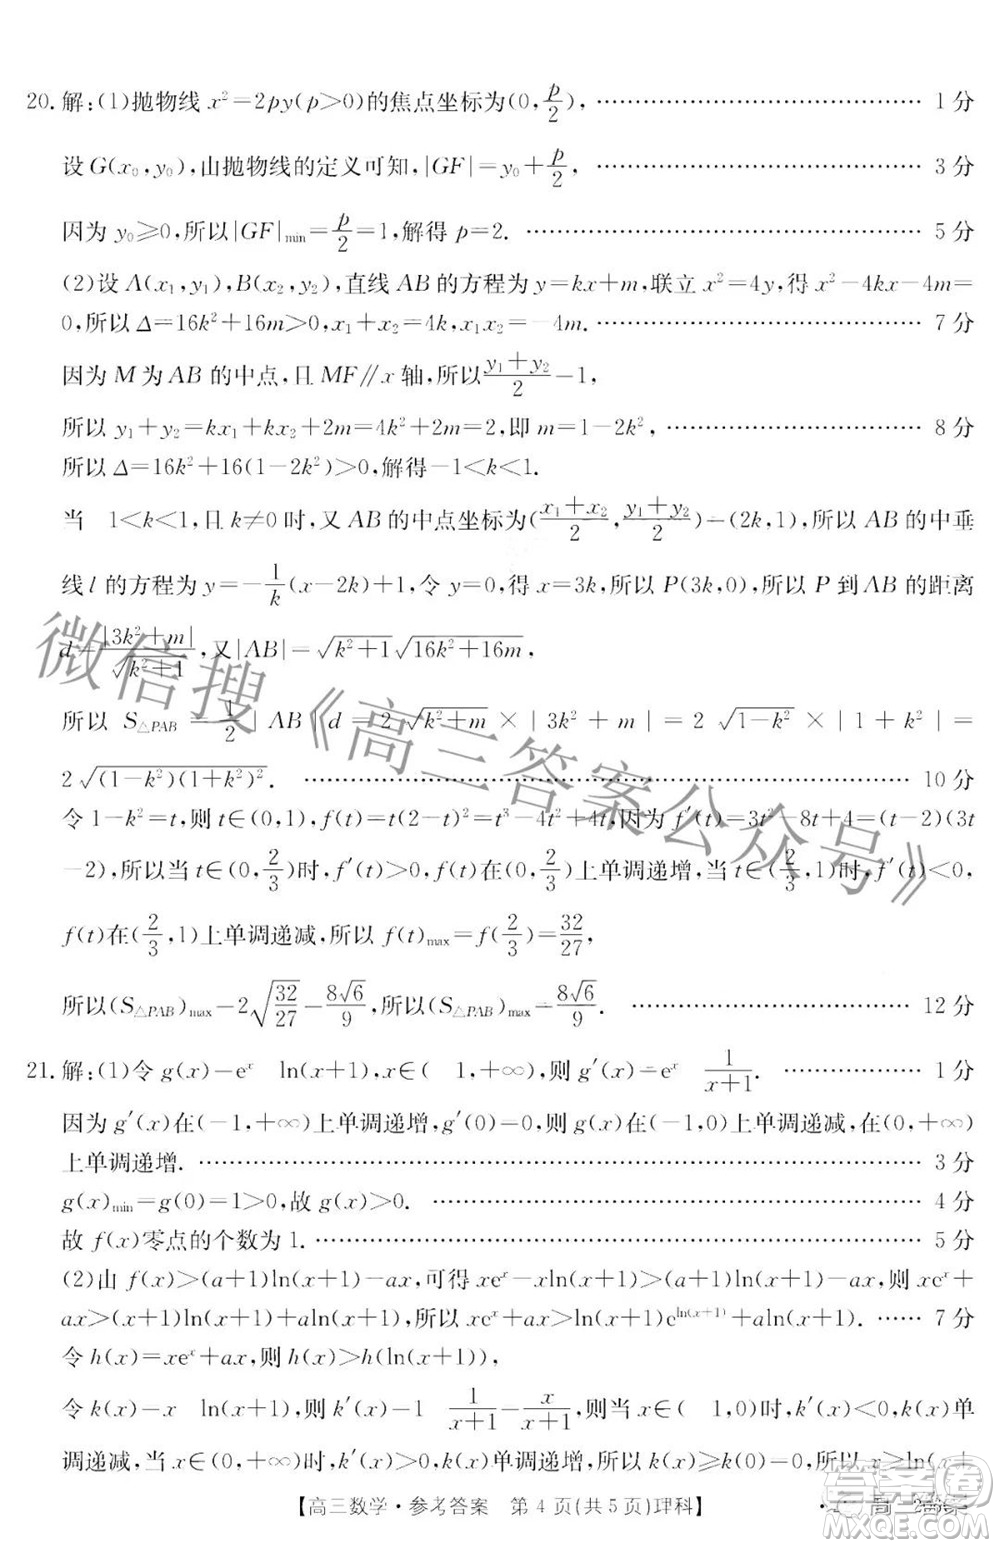 20. 解:(1)抛物线 x²=2py(p>0)的焦点坐标为(0,p/2), …… 1 分
设 G(x₀,y₀),由抛物线的定义可知,|GF|=y₀+p/2, …… 3 分
因为 y₀≥0,所以|GF|min=p/2=1,解得 p=2. …… 5 分
(2)设 A(x₁,y₁),B(x₂,y₂),直线 AB 的方程为 y=kx+m,联立 x²=4y,得 x²-4kx-4m=
0,所以 Δ=16k²+16m>0,x₁+x₂=4k,x₁x₂=-4m. …… 7 分
因为 M 为 AB 的中点,且 MF∥x 轴,所以(y₁+y₂)/2=1,
所以 y₁+y₂=kx₁+kx₂+2m=4k²+2m=2,即 m=1-2k², …… 8 分
所以 Δ=16k²+16(1-2k²)>0,解得-1<k<1.
当-1<k<1,且 k≠0 时,又 AB 的中点坐标为((x₁+x₂)/2,(y₁+y₂)/2)=(2k,1),所以 AB 的中垂
线 l 的方程为 y=-1/k(x-2k)+1,令 y=0,得 x=3k,所以 P(3k,0),所以 P 到 AB 的距离
d=|3k²+m|/√(k²+1),又|AB|=√(k²+1)√(16k²+16m),
所以 S△PAB=1/2|AB|d=2√(k²+m)×|3k²+m|=2√(1-k²)×|1+k²|=
2√((1-k²)(1+k²)²). …… 10 分
令 1-k²=t,则 t∈(0,1),f(t)=t(2-t)²=t³-4t²+4t,因为 f′(t)=3t²-8t+4=(t-2)(3t
-2),所以当 t∈(0,2/3)时,f′(t)>0,f(t)在(0,2/3)上单调递增,当 t∈(2/3,1)时,f′(t)<0,
f(t)在(2/3,1)上单调递减,所以 f(t)max=f(2/3)=32/27,
所以(S△PAB)max=2√(32/27)=8√6/9,所以(S△PAB)max=8√6/9. …… 12 分
21. 解:(1)令 g(x)=eˣ-ln(x+1),x∈(-1,+∞),则 g′(x)=eˣ-1/(x+1). …… 1 分
因为 g′(x)在(-1,+∞)上单调递增,g′(0)=0,则 g(x)在(-1,0)上单调递减,在(0,+∞)
上单调递增. …… 3 分
g(x)min=g(0)=1>0,故 g(x)>0. …… 4 分
故 f(x)零点的个数为 1. …… 5 分
(2)由 f(x)>(a+1)ln(x+1)-ax,可得 xeˣ-xln(x+1)>(a+1)ln(x+1)-ax,则 xeˣ+
ax>(x+1)ln(x+1)+aln(x+1),所以 xeˣ+ax>ln(x+1)e^ln(x+1)+aln(x+1). …… 7 分
令 h(x)=xeˣ+ax,则 h(x)>h(ln(x+1)),
令 k(x)=x-ln(x+1),则 k′(x)=1-1/(x+1)=x/(x+1),所以当 x∈(-1,0)时,k′(x)<0,k(x)单
调递减,当 x∈(0,+∞)时,k′(x)>0,k(x)单调递增,所以 k(x)≥k(0)=0,所以 x≥ln(x+
【高三数学·参考答案 第 4 页(共 5 页)理科】
微信搜《高三答案公众号》